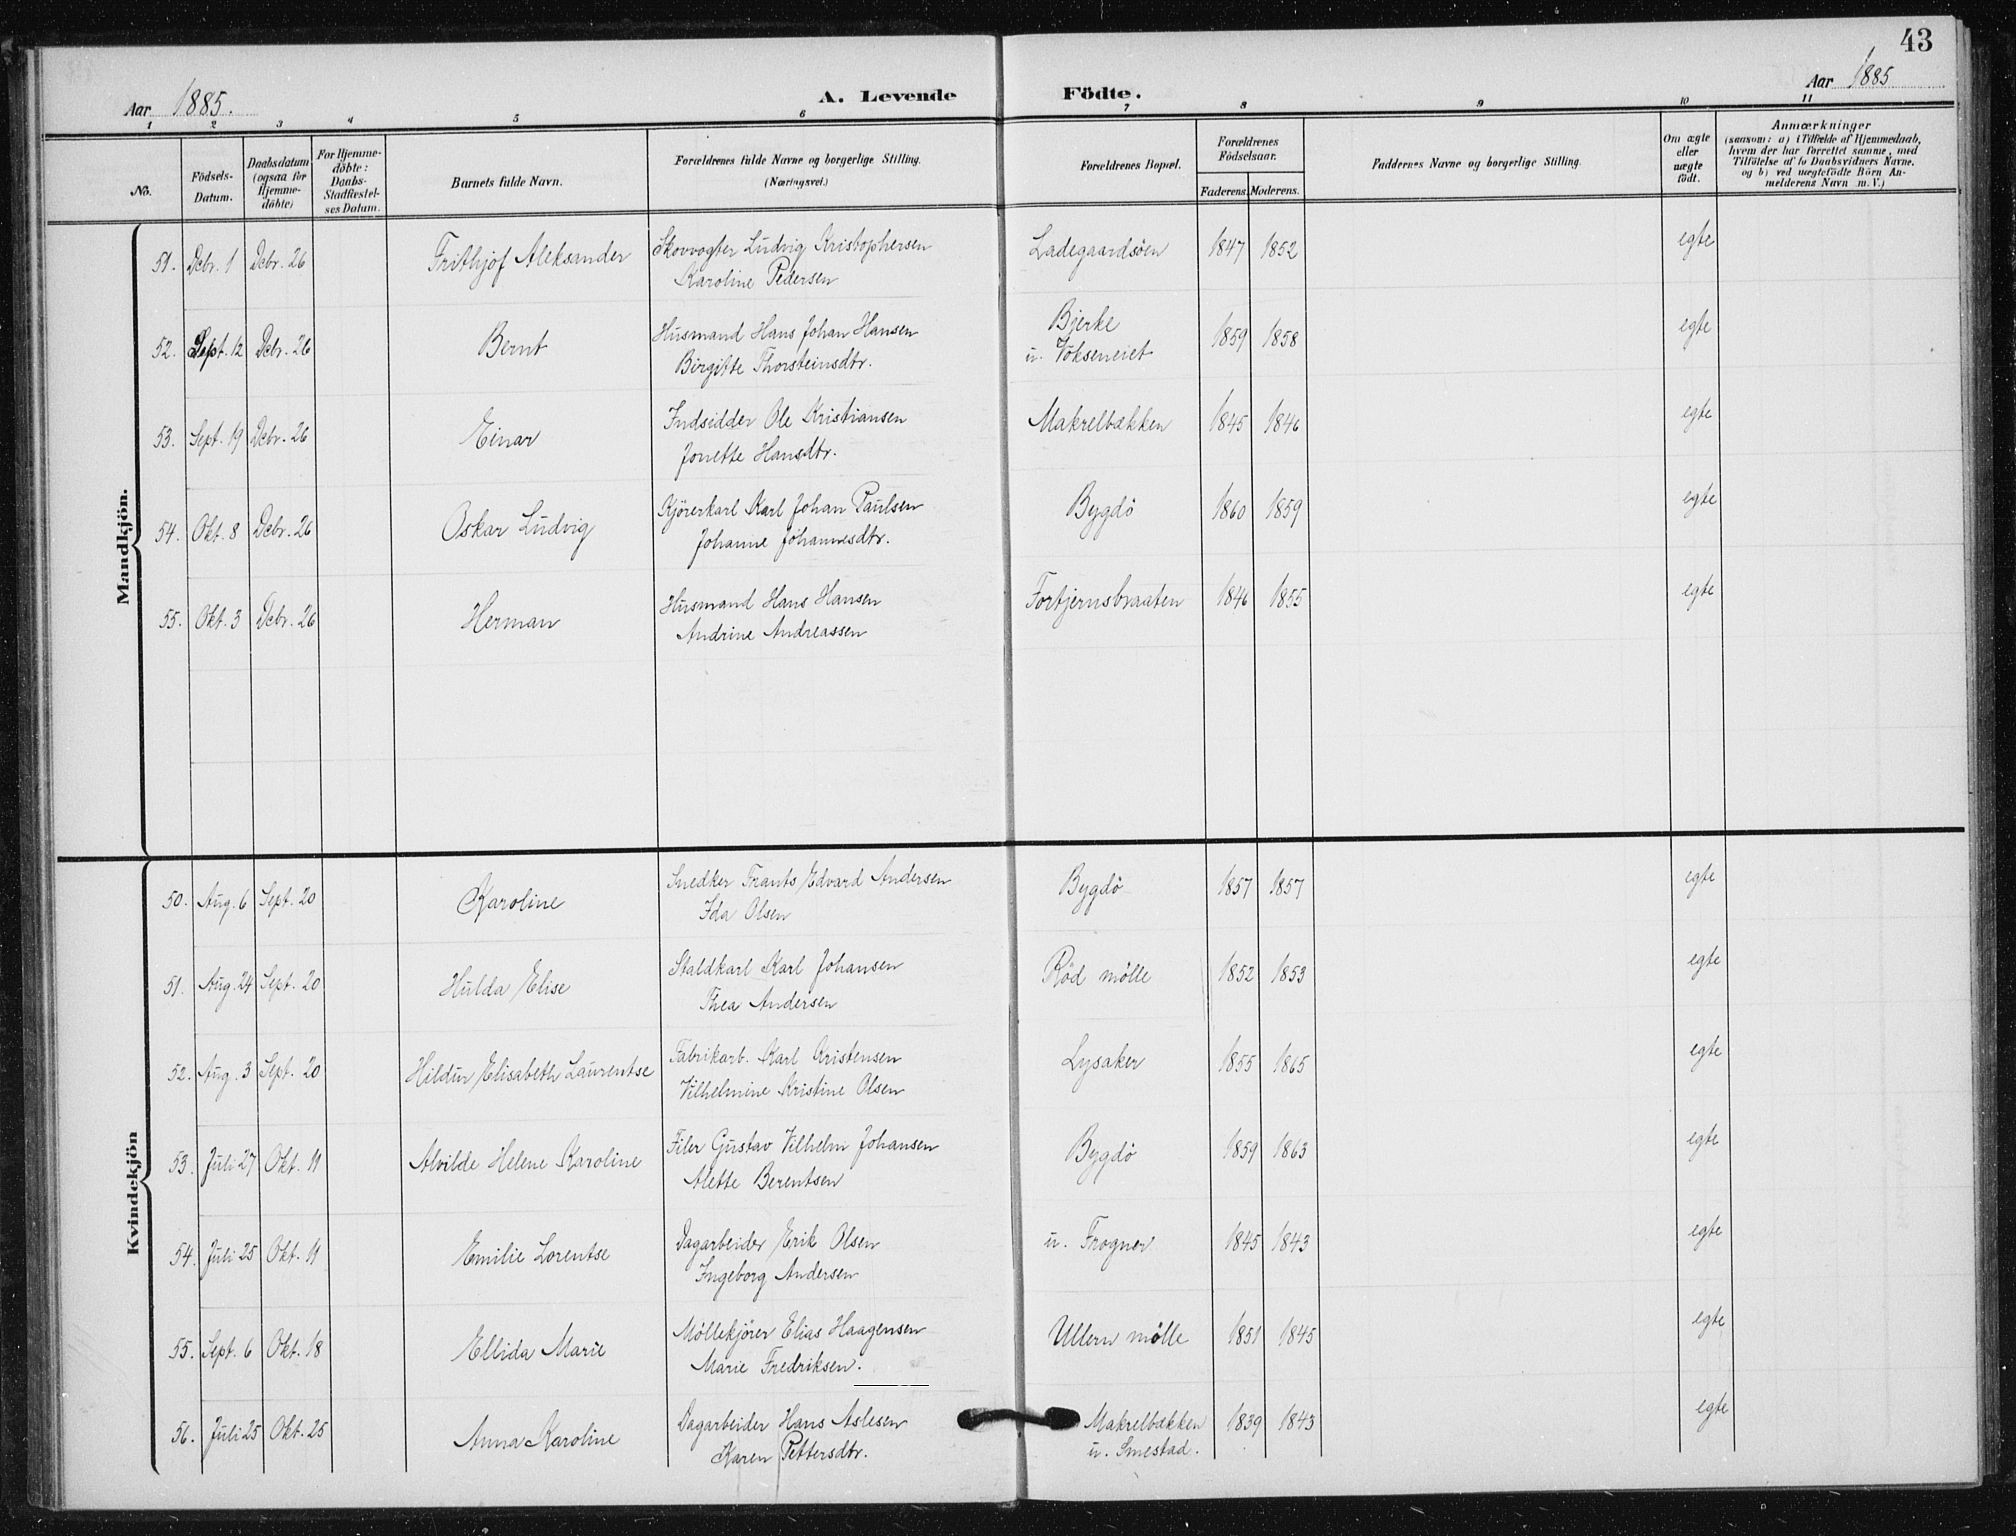 43
Aar 1885. A. Levende Födte. Aar 1885
1 2 3 4 5 6 7 8 9 10 11
No. Födsels-Datum. Daabsdatum (ogsaa for Hjemme-döbte) For Hjemme-döbte: Daabs-Stadfæstel-ses Datum. Barnets fulde Navn. Forældrenes fulde Navne og borgerlige Stilling. (Næringsvei.) Forældrenes Bopæl. Forældrenes Födselsaar. Faderens. Moderens. Faddernes Navne og borgerlige Stilling. Om ægte eller uægte födt. Anmærkninger (saasom: a) i Tilfælde af Hjemmedaab, hvem der har forrettet samme, med Tilföielse af to Daabsvidners Navne. og b) ved uægtefödte Börn An-melderens Navn m. V.)
Mandkjön.
51. Dcbr. 1 Dcbr. 26 Frithjof Aleksander Skovvogter Ludvig Kristophersen Ladegaardsöen 1847 1852 egte
Karoline Pedersen
52. Sept. 12 Dcbr. 26 Bernt Husmand Hans Johan Hansen Bjerke 1859 1858 egte
Birgitte Thorsteinsdtr. u. Vokseneiet
53. Sept. 19 Dcbr. 26 Einar Indsidder Ole Kristiansen Makrelbækken 1845 1846 egte
Jonette Hansdtr.
54. Okt. 8 Dcbr. 26 Oskar Ludvig Kjörerkarl Karl Johan Paulsen Bygdö 1860 1859 egte
Johanne Johannesdtr.
55. Okt. 3 Dcbr. 26 Herman Husmand Hans Hansen Fortjernsbraaten 1846 1855 egte
Andrine Andreassen
Kvindekjön
50. Aug. 6 Sept. 20 Karoline Snedker Frants Edvard Andersen Bygdö 1857 1857 egte
Ida Olsen
51. Aug. 24 Sept. 20 Hulda Elise Staldkarl Karl Johansen Röd mölle 1852 1853 egte
Thea Andersen
52. Aug. 3 Sept. 20 Hildur Elisabeth Laurentse Fabrikarb. Karl Kristensen Lysaker 1855 1865 egte
Vilhelmine Kristine Olsen
53. Juli 27 Okt. 11 Alvilde Helene Karoline Filer Gustav Vilhelm Johansen Bygdö 1859 1863 egte
Alette Berentsen
54. Juli 25 Okt. 11 Emilie Lorentse Dagarbeider Erik Olsen u. Frogner 1845 1843 egte
Ingeborg Andersen
55. Sept. 6 Okt. 18 Ellida Marie Möllekjörer Elias Haagensen Ullern mölle 1851 1845 egte
Marie Fredriksen.
56. Juli 25 Okt. 25 Anna Karoline Dagarbeider Hans Aslesen Makrelbækken 1839 1843 egte
Karen Pettersdtr. u. Smestad.